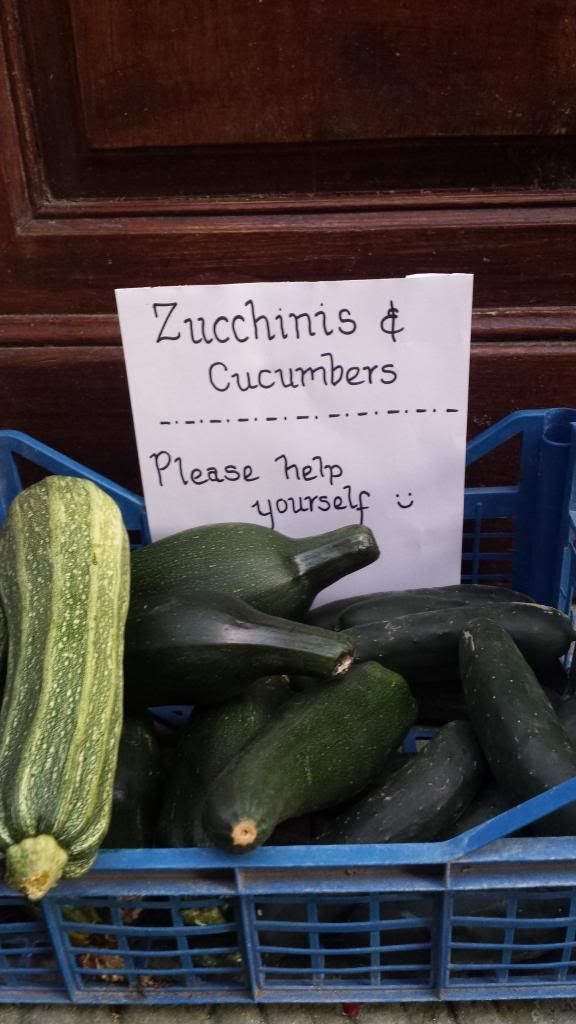 Zucchinis &
Cucumbers
Please help
yourself :)